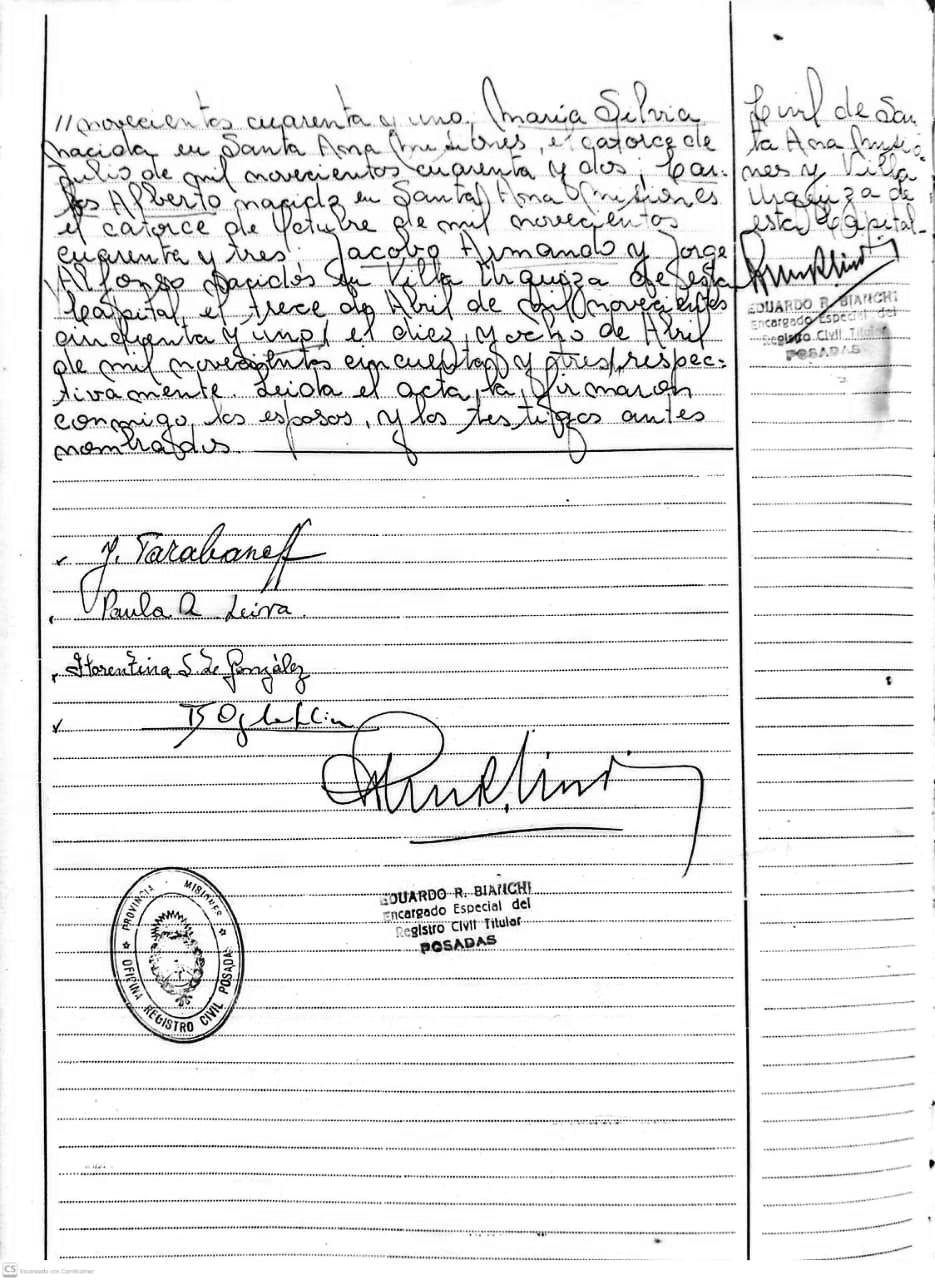 // novecientos cuarenta y uno, María Silvia
nacida en Santa Ana Misiones, el catorce de
Julio de mil novecientos cuarenta y dos; Car-
los Alberto nacido en Santa Ana Misiones
el catorce de Octubre de mil novecientos
cuarenta y tres, Jacobo Armando y Jorge
Alfonso nacidos en Villa Urquiza de esta
Capital, el trece de Abril de mil novecientos
cincuenta y uno, el diez y ocho de Abril
de mil novecientos cincuenta y tres, respec-
tivamente. Leida el acta, la firmaron
conmigo, los esposos, y los testigos antes
nombrados
J. Tarabaneff
Paula A. Leiva.
Florentina S. de González
EDUARDO R. BIANCHI
Encargado Especial del
Registro Civil Titular
POSADAS
PROVINCIA MISIONES
OFICINA REGISTRO CIVIL POSADAS
Civil de San
ta Ana Misio
nes y Villa
Urquiza de
esta Capital-
EDUARDO R. BIANCHI
Encargado Especial del
Registro Civil Titular
POSADAS
CS Escaneado con CamScanner